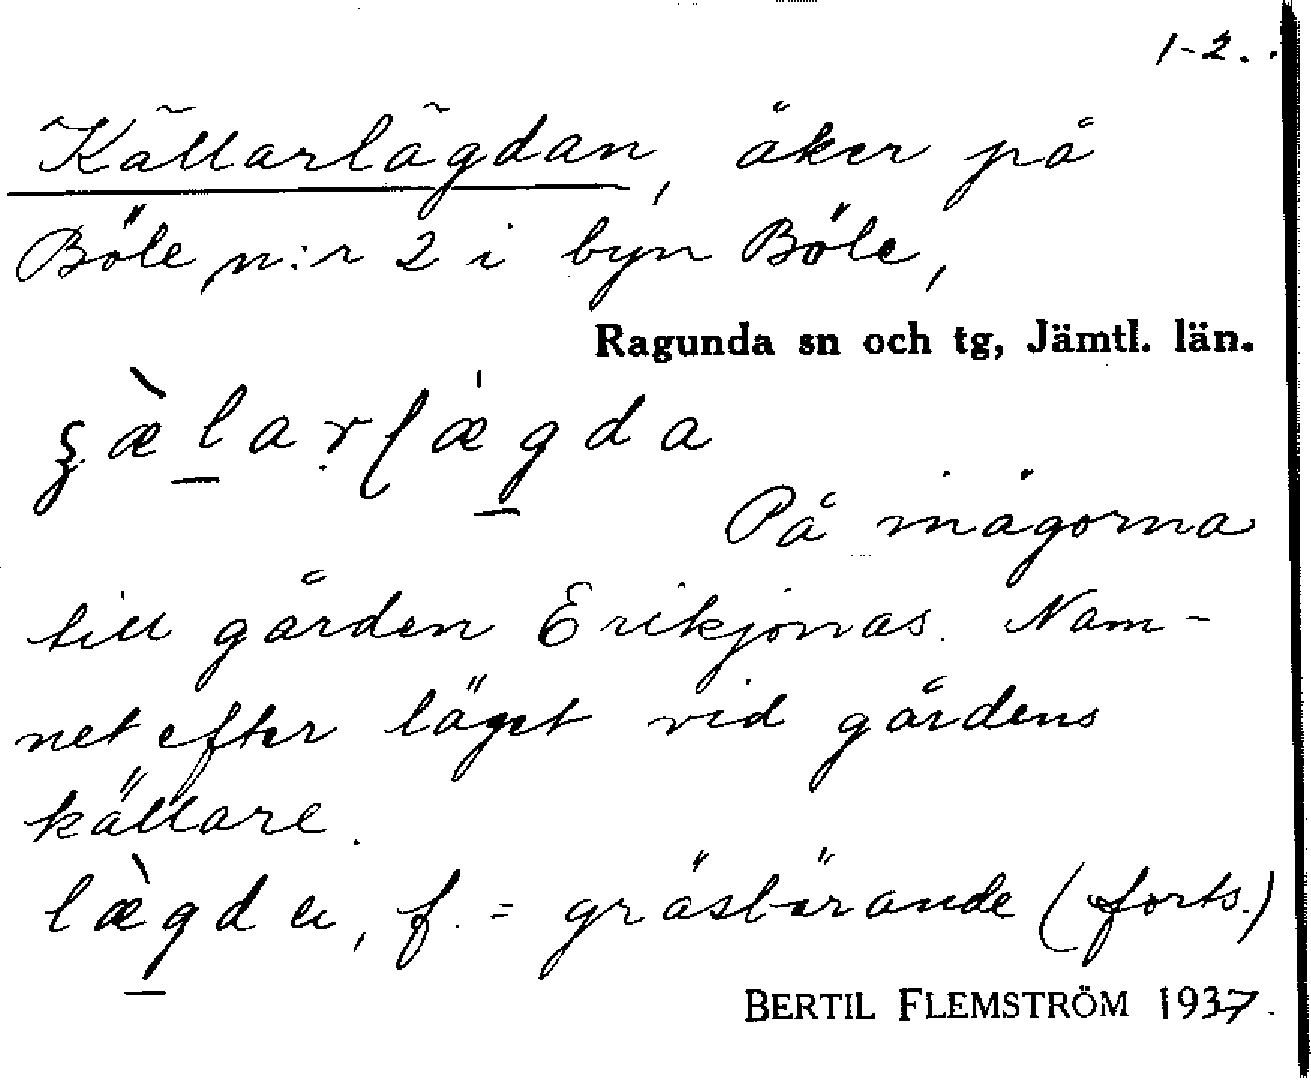 1-2.
Källarlägdan, åker på
Böle n:r 2 i byn Böle,
Ragunda sn och tg, Jämtl. län.
På inägorna
till gården Erikjonas. Nam-
net efter läget vid gårdens
källare.
f. = gräsbärande (forts.)
BERTIL FLEMSTRÖM 1937.